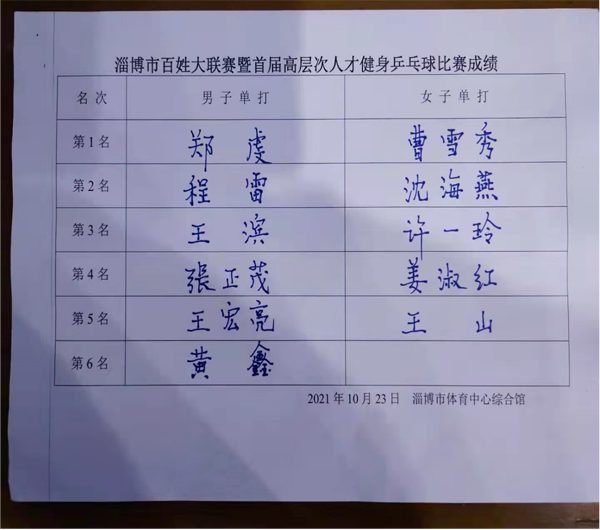 淄博市百姓大联赛暨首届高层次人才健身乒乓球比赛成绩
名次 男子单打 女子单打
第1名 郑虔 曹雪秀
第2名 程雷 沈海燕
第3名 王滨 许一玲
第4名 張正茂 姜淑红
第5名 王宏亮 王山
第6名 黄鑫
2021年10月23日 淄博市体育中心综合馆